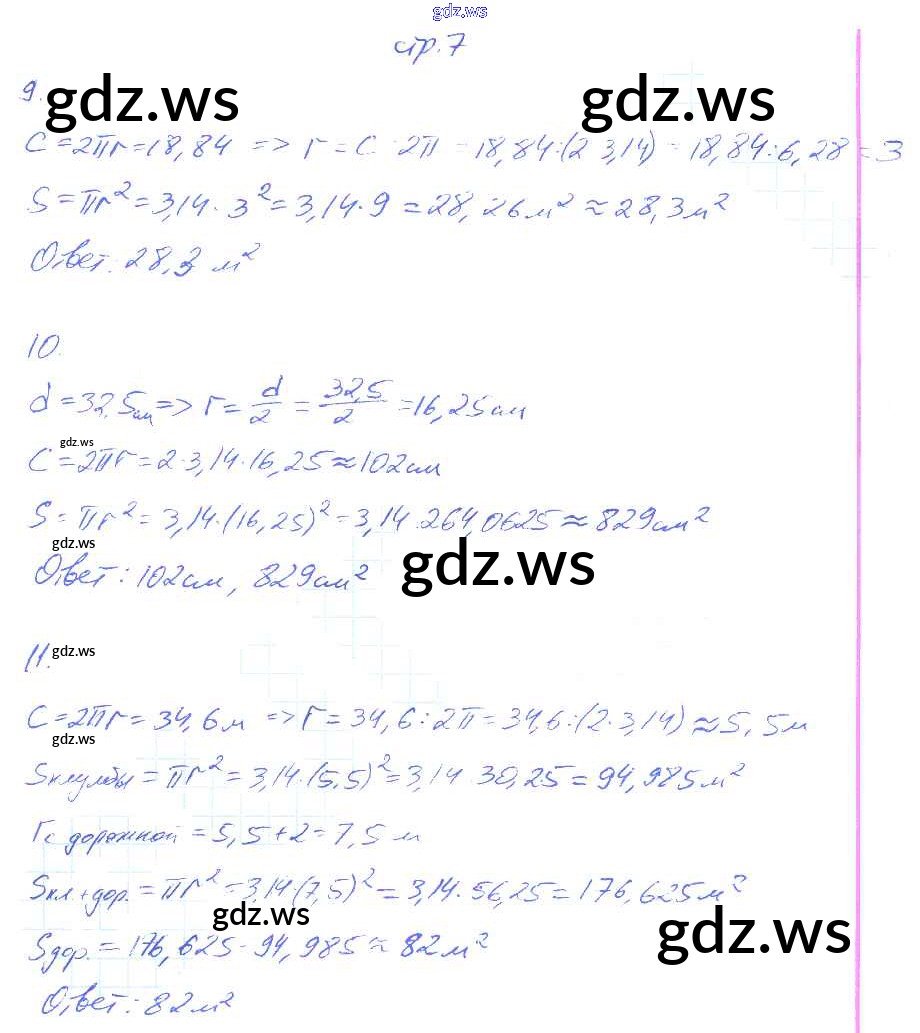 gdz.ws
стр. 7
9.
gdz.ws gdz.ws
C = 2πr = 18,84 => r = C : 2π = 18,84 : (2·3,14) = 18,84 : 6,28 = 3
S = πr² = 3,14 · 3² = 3,14 · 9 = 28,26 м² ≈ 28,3 м²
Ответ: 28,3 м²
10.
d = 32,5 см => r = d/2 = 32,5/2 = 16,25 см
gdz.ws
C = 2πr = 2·3,14·16,25 ≈ 102 см
S = πr² = 3,14·(16,25)² = 3,14·264,0625 ≈ 829 см²
gdz.ws
gdz.ws
Ответ: 102 см, 829 см²
11.
gdz.ws
C = 2πr = 34,6 м => r = 34,6 : 2π = 34,6 : (2·3,14) ≈ 5,5 м
gdz.ws
Sклумбы = πr² = 3,14·(5,5)² = 3,14·30,25 = 94,985 м²
rс дорожкой = 5,5 + 2 = 7,5 м
Sкл.+дор. = πr² = 3,14·(7,5)² = 3,14·56,25 = 176,625 м²
gdz.ws
gdz.ws
Sдор. = 176,625 - 94,985 ≈ 82 м²
Ответ: 82 м²